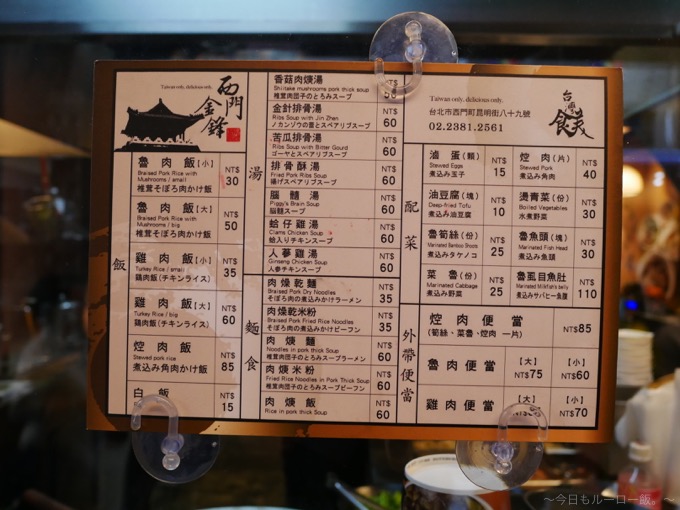 Taiwan only, delicious only.
西門
金鋒
飯
魯肉飯【小】 NT$ 30
Braised Pork Rice with
Mushrooms / small
椎茸そぼろ肉かけ飯
魯肉飯【大】 NT$ 50
Braised Pork Rice with
Mushrooms / big
椎茸そぼろ肉かけ飯
雞肉飯【小】 NT$ 35
Turkey Rice / small
鶏肉飯(チキンライス)
雞肉飯【大】 NT$ 60
Turkey Rice / big
鶏肉飯(チキンライス)
焢肉飯 NT$ 85
Stewed pork rice
煮込み角肉かけ飯
白飯 NT$ 15
湯
香菇肉焿湯
Shiitake mushrooms pork thick soup
椎茸肉団子のとろみスープ
金針排骨湯 NT$ 60
Ribs Soup with Jin Zhen
ノカンゾウの蕾とスペアリブスープ
苦瓜排骨湯 NT$ 60
Ribs Soup with Bitter Gourd
ゴーヤとスペアリブスープ
排骨酥湯 NT$ 60
Fried Pork Ribs Soup
揚げスペアリブスープ
腦髓湯 NT$ 60
Piggy's Brain Soup
脳髄スープ
蛤仔雞湯 NT$ 60
Clams Chicken Soup
蛤入りチキンスープ
人蔘雞湯 NT$ 60
Ginseng Chicken Soup
人参チキンスープ
麵食
肉燥乾麵 NT$ 35
Braised Pork Dry Noodles
そぼろ肉の煮込みかけラーメン
肉燥乾米粉 NT$ 35
Braised Pork Fried Rice Noodles
そぼろ肉の煮込みかけビーフン
肉焿麵 NT$ 60
Noodles in pork thick Soup
椎茸肉団子のとろみスープラーメン
肉焿米粉 NT$ 60
Fried Rice Noodles in Pork Thick Soup
椎茸肉団子のとろみスープビーフン
肉焿飯 NT$ 60
Rice in pork thick Soup
Taiwan only, delicious only.
台北市西門町昆明街八十九號
02.2381.2561
台灣食美
配菜
滷蛋(顆) NT$ 15
Stewed Eggs
煮込み玉子
焢肉(片) NT$ 40
Stewed Pork
煮込み角肉
油豆腐(塊) NT$ 10
Deep-fried Tofu
煮込み油豆腐
燙青菜(份) NT$ 30
Boiled Vegetables
水煮野菜
魯筍絲(份) NT$ 25
Marinated Bamboo Shoots
煮込みタケノコ
魯魚頭(塊) NT$ 30
Marinated Fish Head
煮込み魚頭
菜魯(份) NT$ 25
Marinated Cabbage
煮込み野菜
魯虱目魚肚 NT$ 110
Marinated Milkfish's belly
煮込みサバヒー魚腹
外帶便當
焢肉便當 NT$85
(筍絲、菜魯、焢肉 一片)
魯肉便當 【大】 NT$75 【小】 NT$60
雞肉便當 【大】 【小】 NT$70
～今日もルーロー飯。～